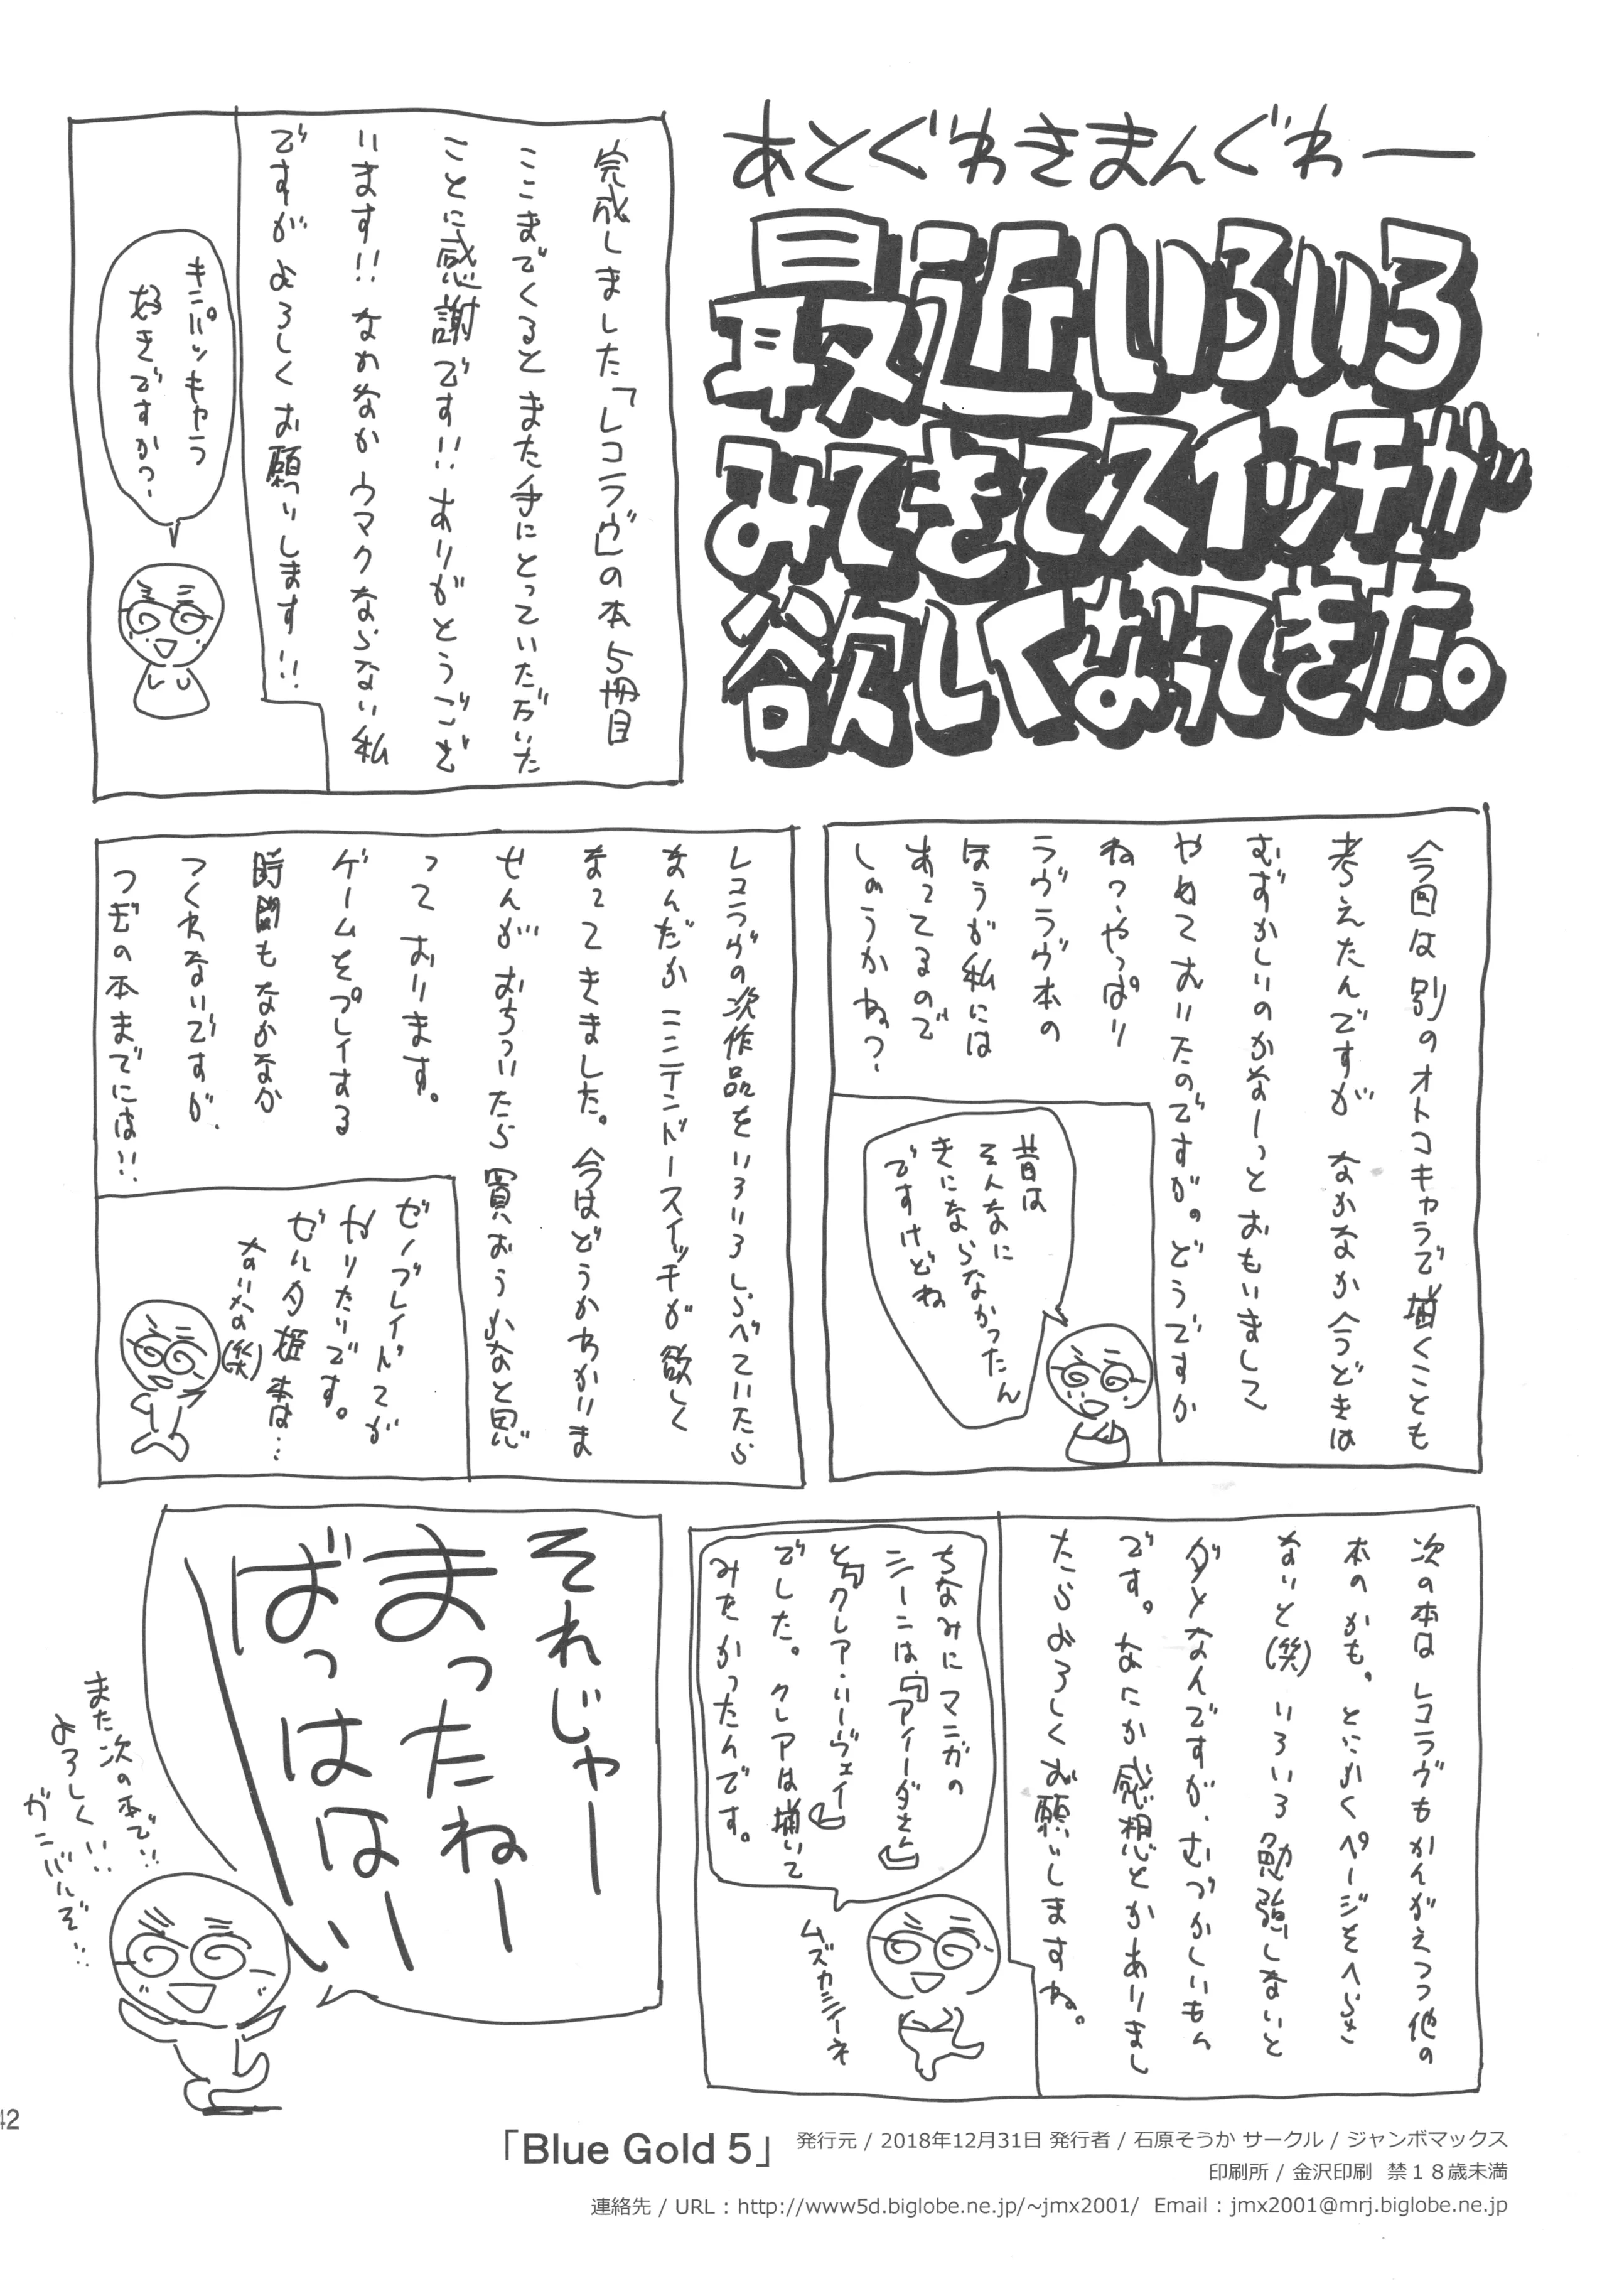 あとぐわきまんぐわー
最近いろいろ
みてきてスイッチが
欲しくなってきた。
完成しました「レコラヴ」の本5冊目
ここまでくると また手にとっていただいた
ことに感謝です!! ありがとうござ
います!! なかなか ウマクならない私
ですが よろしく お願いします!!
キンパツキャラ
好きですか?
今回は 別のオトコキャラで描くことも
考えたんですが なかなか 今どきは
むずかしいのかなーっと おもいまして
やめておいたのですが。どうですか
ね? やっぱり
ラヴラヴ本の
ほうが私には
あってるので
しょうかね?
昔は
そんなに
きにならなかったん
ですけどね
レコラヴの次作品をいろいろ しらべていたら
なんだか ニンテンドースイッチが 欲しく
なってきました。今はどうかわかりま
せんが おちついたら 買おうかなと思
って おります。
ゲームをプレイする
時間もなかなか
つくれないですが、
つぎの本までには!!
ゼノブレイド2が
やりたいです。
ゼルダ姫本は…
ないなの(笑)
次の本は レコラヴもかんがえつつ他の
本のかも。とにかくページをへらさ
ないと(笑) いろいろ 勉強しないと
ダメなんですが、むづかしいもん
です。なにか感想とかありまし
たらよろしくお願いしますね。
ちなみにマンガの
シーンは「アイーダさん」
と「クレア・ハーヴェイ」
でした。クレアは描いて
みたかったんです。
ムズカシイーネ
それじゃー
まったねー
ばっはは〜い
また次の本で!!
よろしく!!
ガンバルぞ!!
42
「Blue Gold 5」 発行元 / 2018年12月31日 発行者 / 石原そうか サークル / ジャンボマックス
印刷所 / 金沢印刷 禁１８歳未満
連絡先 / URL : http://www5d.biglobe.ne.jp/~jmx2001/ Email : jmx2001@mrj.biglobe.ne.jp